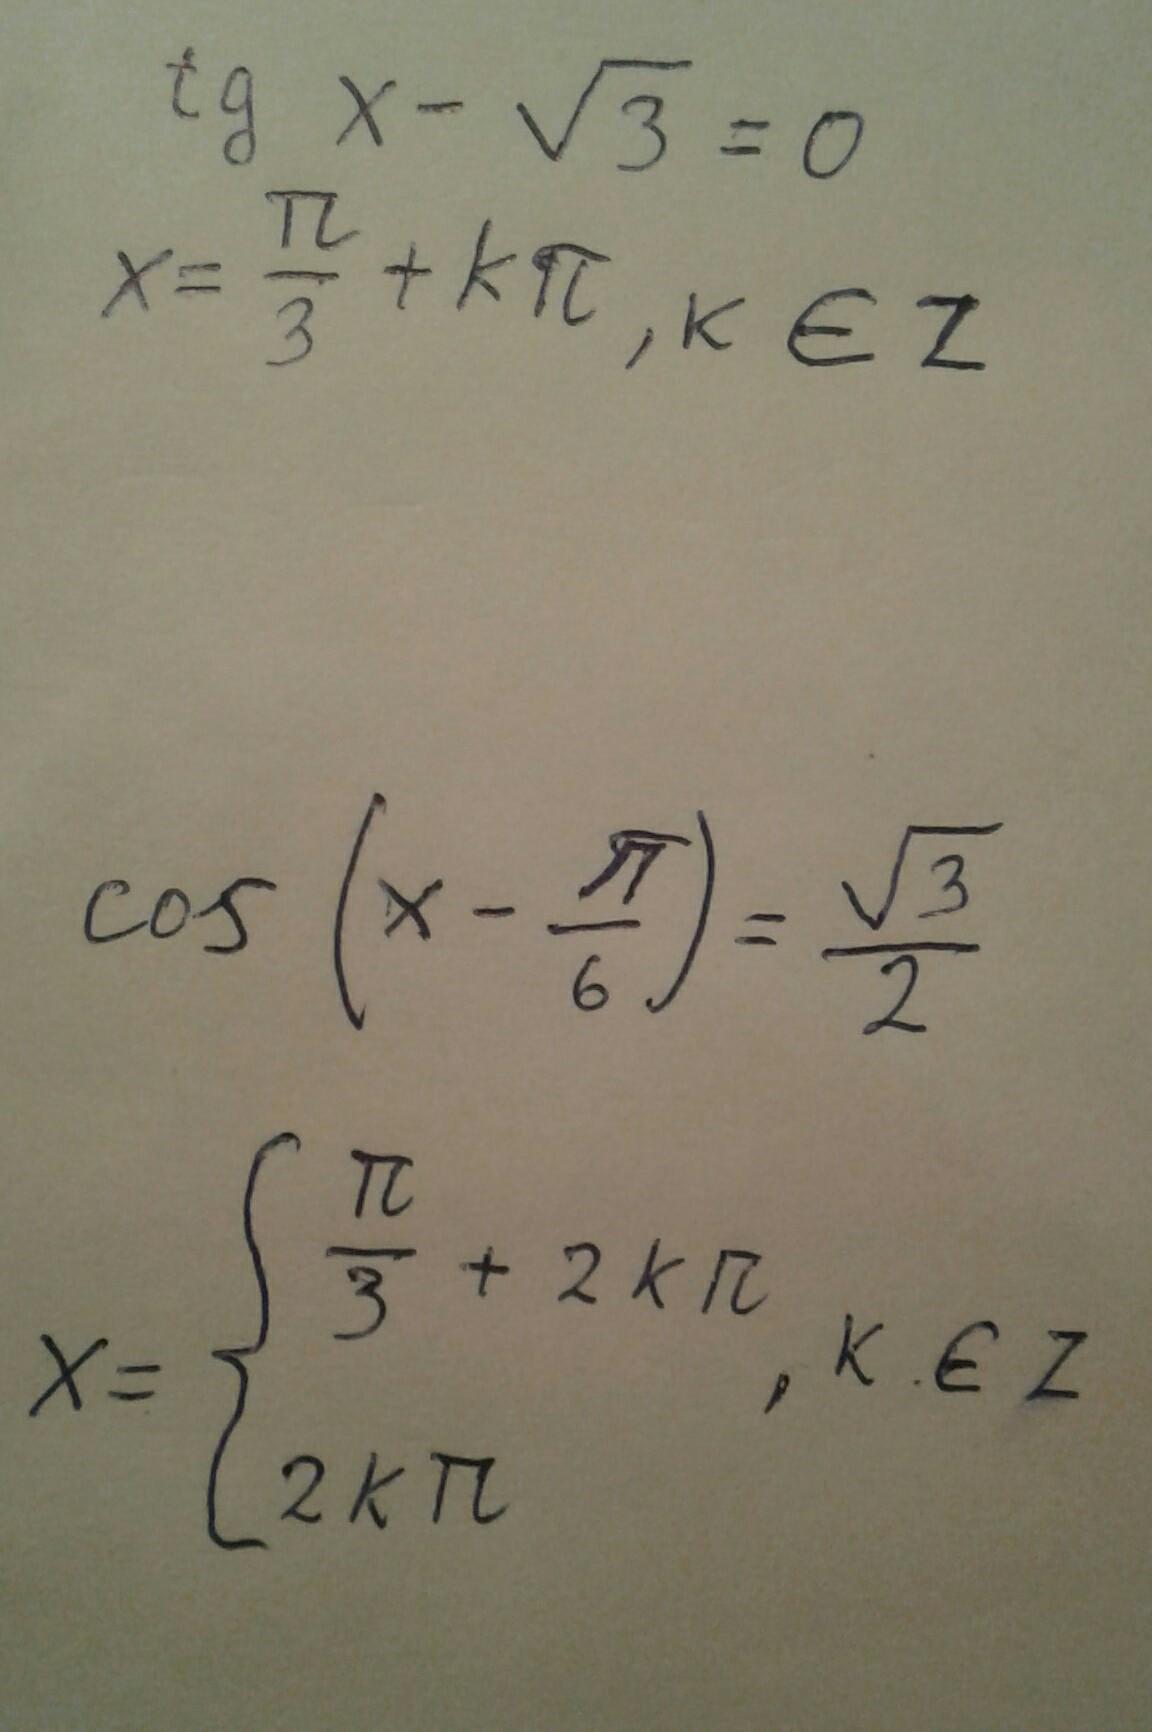 tg x - √3 = 0
x = π/3 + kπ, k ∈ Z
cos (x - π/6) = √3/2
x = { π/3 + 2kπ
, k ∈ Z
2kπ